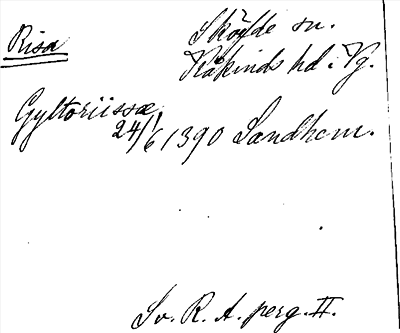 Risa
Sköfde sn.
Kåkinds hd i Vg.
Gyltoriissæ
24/6 1390 Sandhem.
Sv. R. A. perg. II.